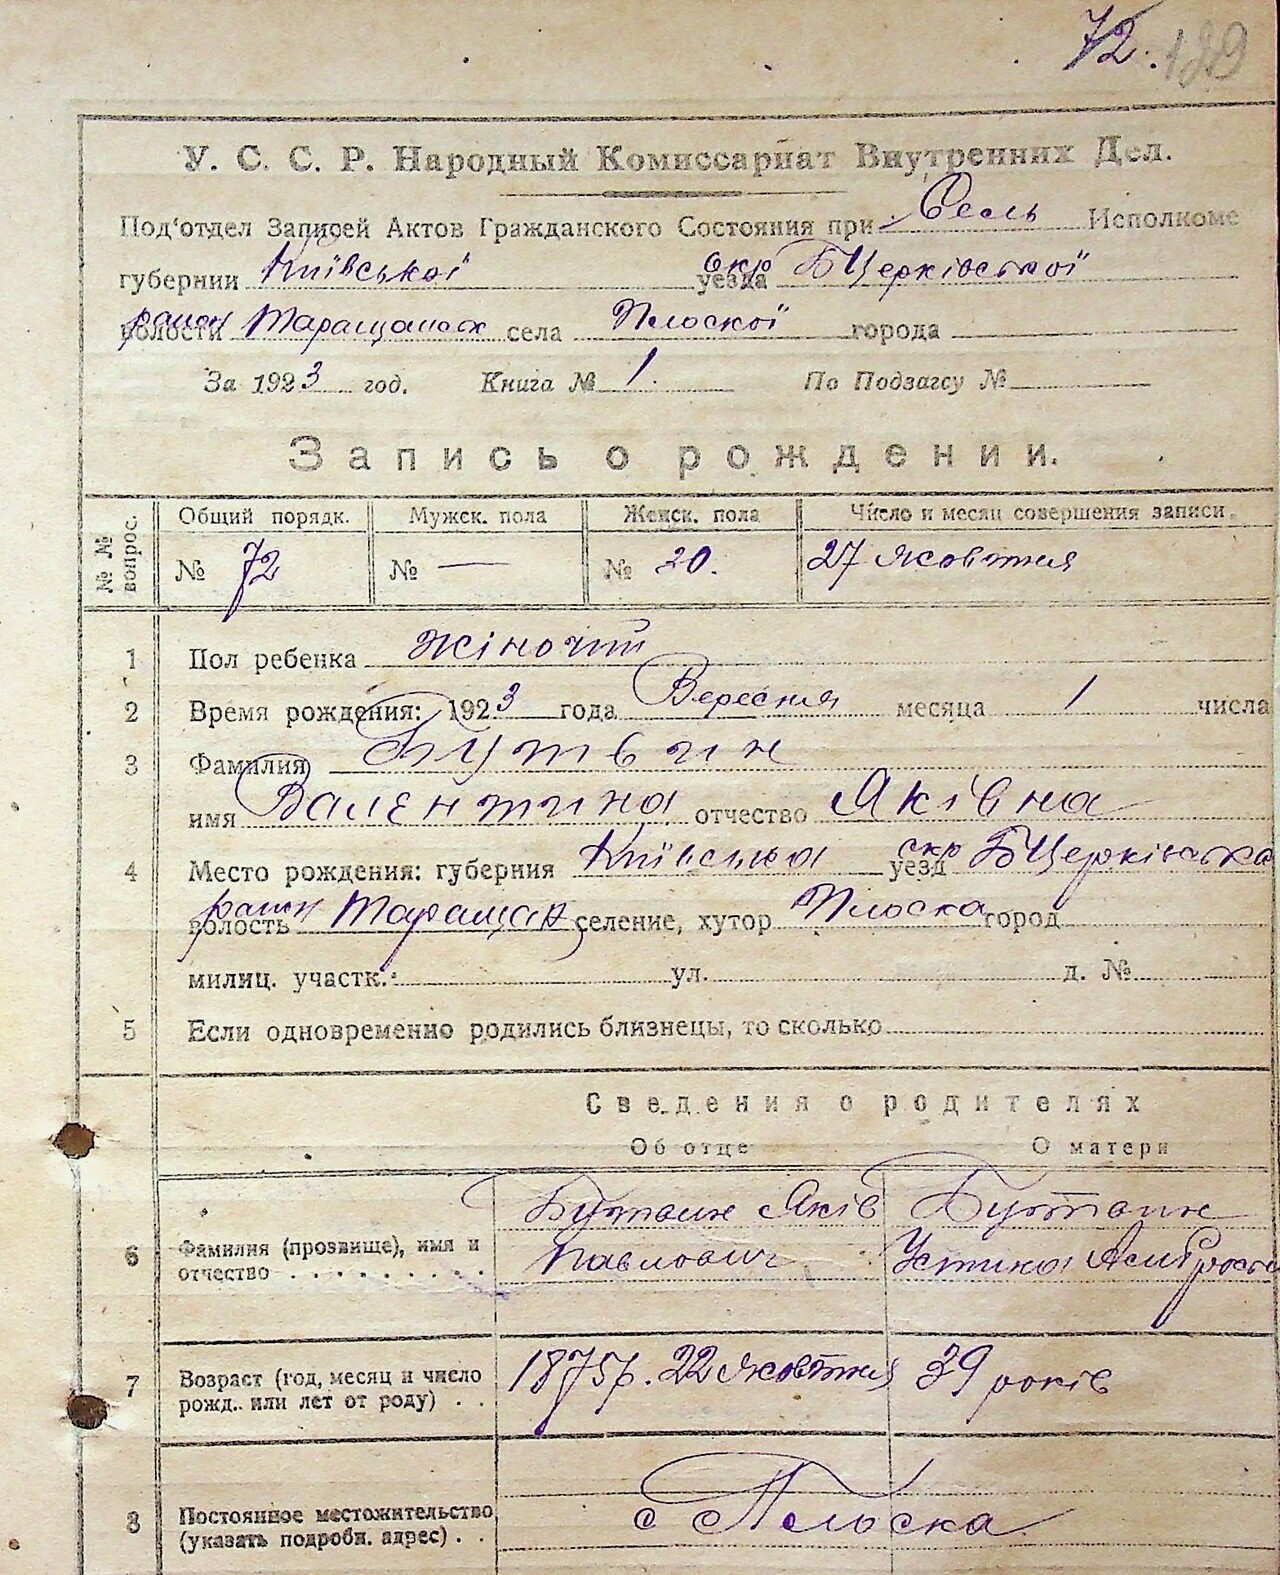 72. 189
У. С. С. Р. Народный Комиссариат Внутренних Дел.
Под'отдел Записей Актов Гражданского Состояния при Сель Исполкоме
губернии Київської уезда окр БЦерківської
волости район Таращанськ села Плоскої города
За 1923 год. Книга № 1. По Подзагсу №
Запись о рождении.
№ № вопрос. Общий порядк. Мужск. пола Женск. пола Число и месяц совершения записи.
№ 72 № — № 30. 27 жовтня
1 Пол ребенка жіночий
2 Время рождения: 1923 года Вересня месяца 1 числа
3 Фамилия Бутвин
имя Валентина отчество Яківна
4 Место рождения: губерния Київська уезд окр БЦерківська
волость район Таращан селение, хутор Плоска город
милиц. участк. ул. д. №
5 Если одновременно родились близнецы, то сколько
Сведения о родителях
Об отце О матери
Бутвин Яків Бутвин
6 Фамилия (прозвище), имя и отчество Павлович Устина
7 Возраст (год, месяц и число рожд. или лет от роду) 1875р. 22 жовтня 39 років
8 Постоянное местожительство (указать подробн. адрес) с Плоска